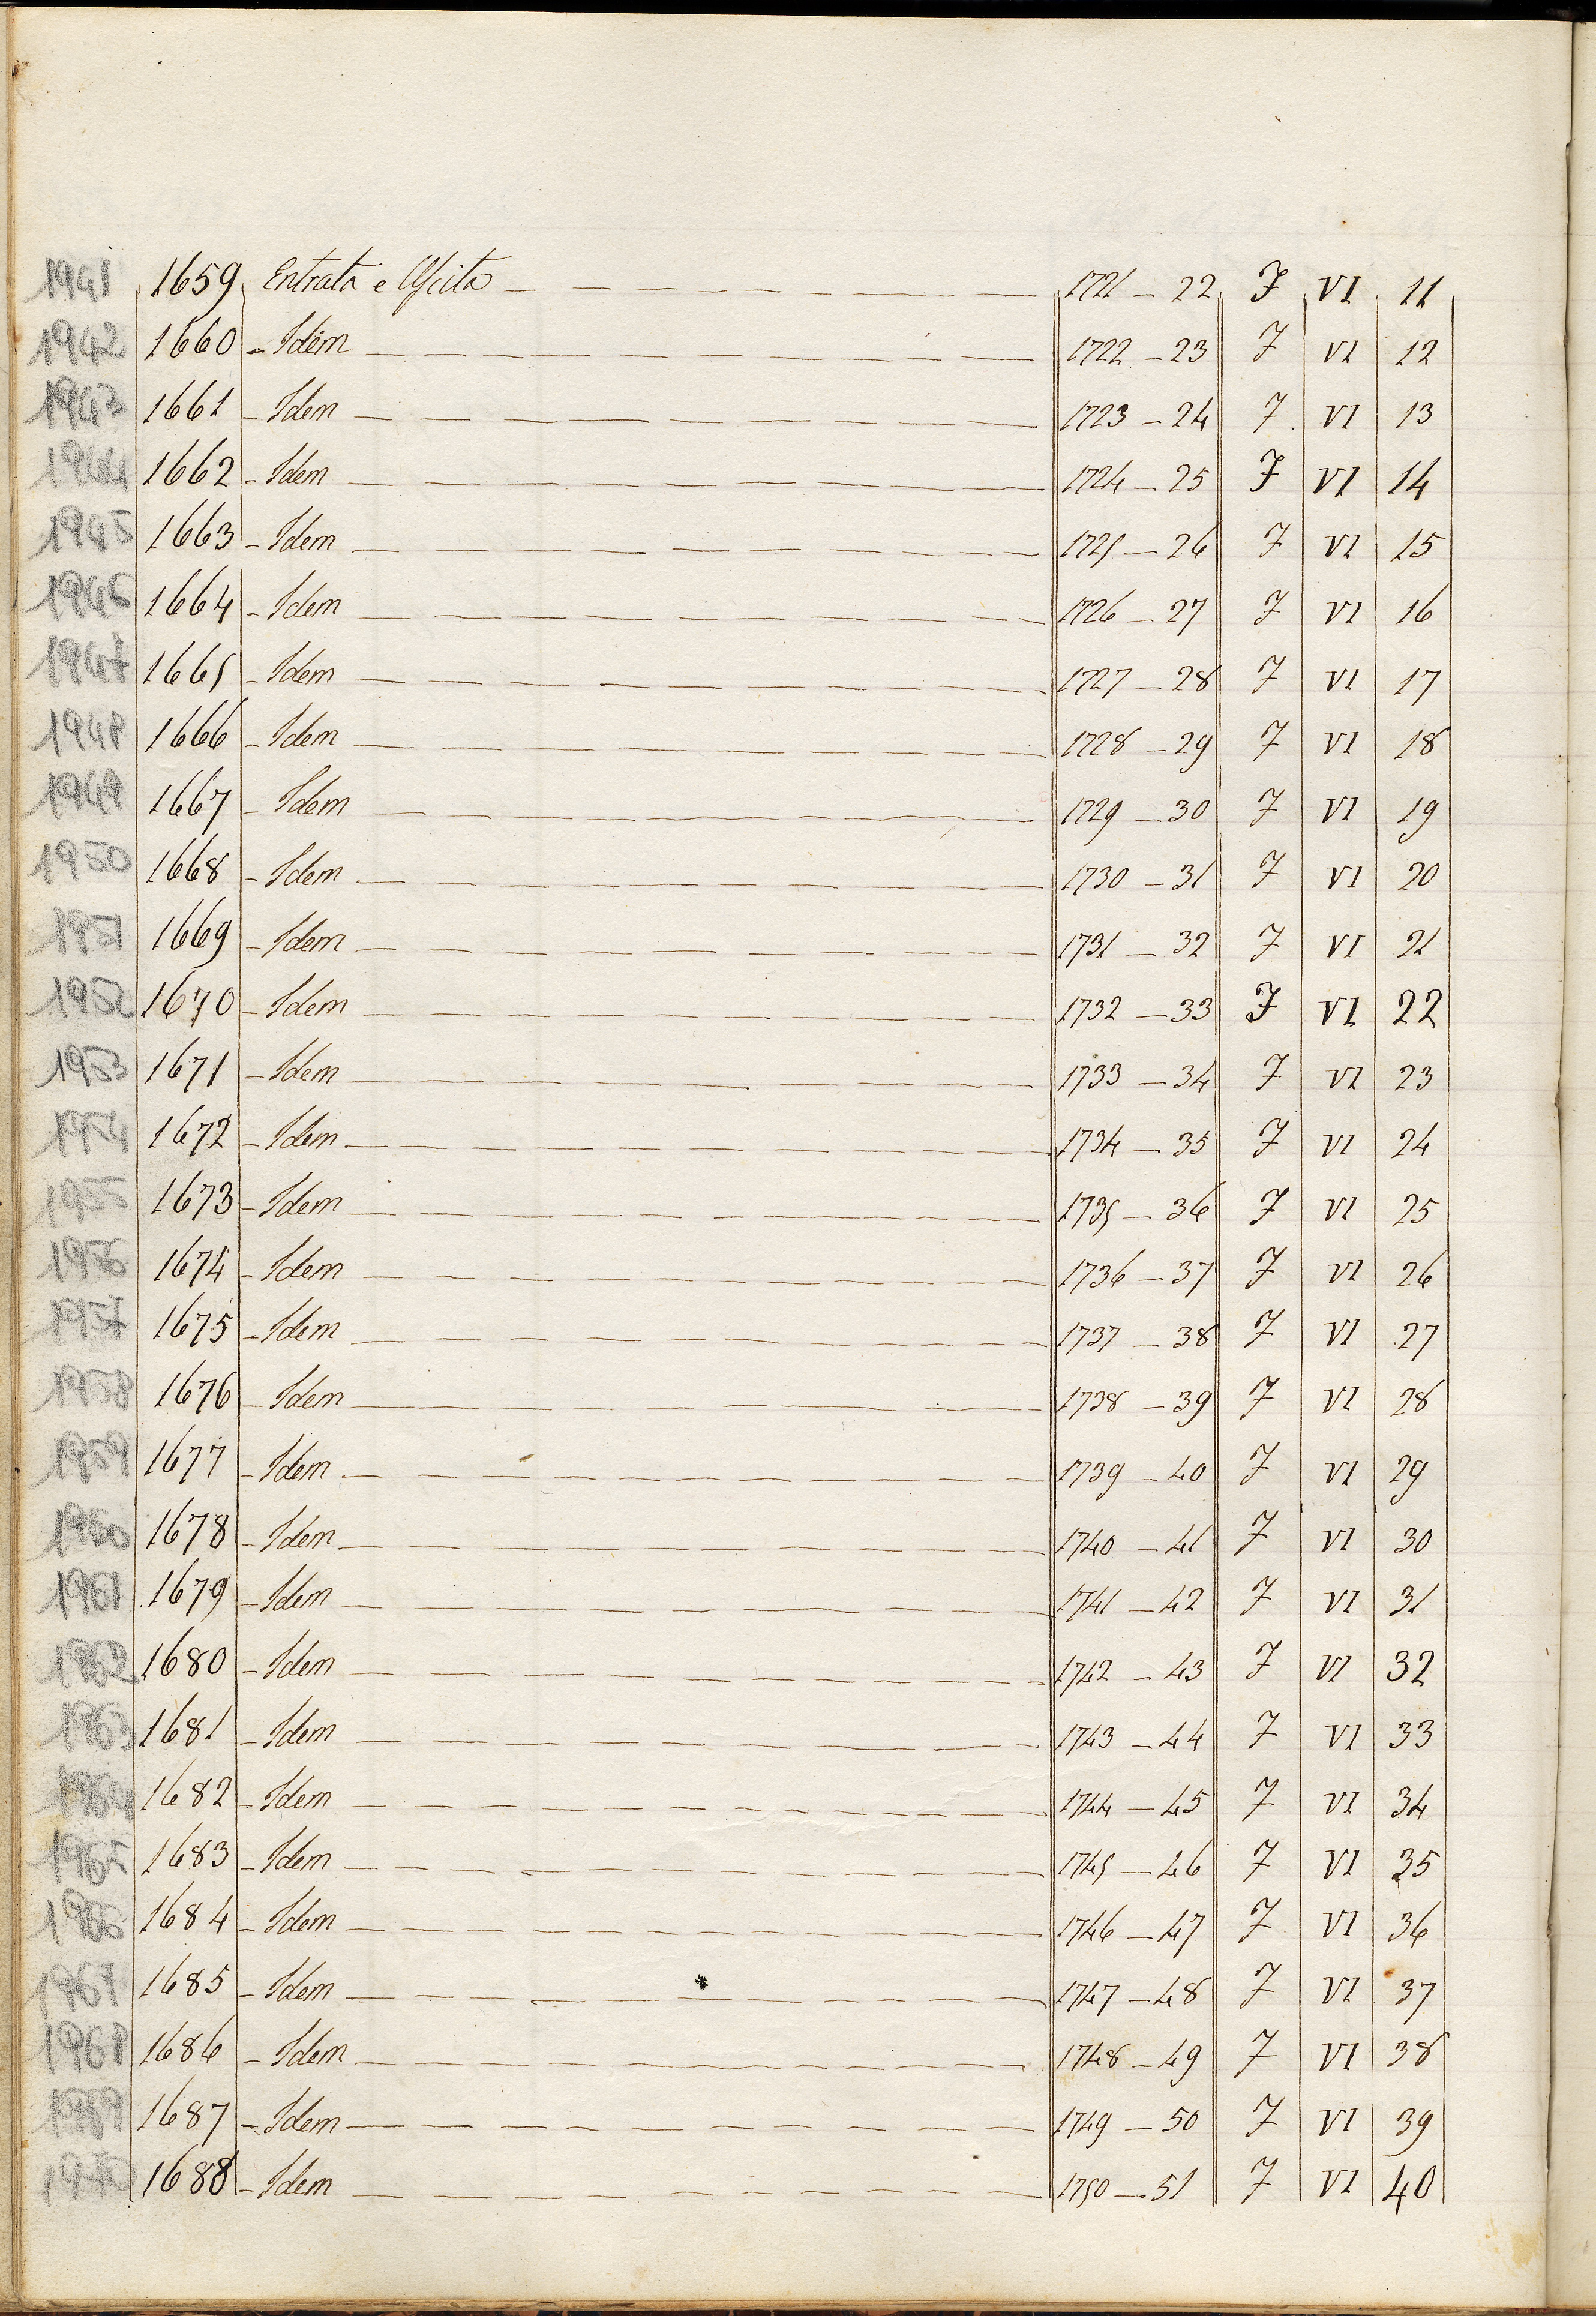 1941 1659 Entrata e Uscita 1721 - 22 F VI 11
1942 1660 - Idem 1722 - 23 F VI 12
1943 1661 - Idem 1723 - 24 F VI 13
1944 1662 - Idem 1724 - 25 F VI 14
1945 1663 - Idem 1725 - 26 F VI 15
1946 1664 - Idem 1726 - 27 F VI 16
1947 1665 - Idem 1727 - 28 F VI 17
1948 1666 - Idem 1728 - 29 F VI 18
1949 1667 - Idem 1729 - 30 F VI 19
1950 1668 - Idem 1730 - 31 F VI 20
1951 1669 - Idem 1731 - 32 F VI 21
1952 1670 - Idem 1732 - 33 F VI 22
1953 1671 - Idem 1733 - 34 F VI 23
1954 1672 - Idem 1734 - 35 F VI 24
1955 1673 - Idem 1735 - 36 F VI 25
1956 1674 - Idem 1736 - 37 F VI 26
1957 1675 - Idem 1737 - 38 F VI 27
1958 1676 - Idem 1738 - 39 F VI 28
1959 1677 - Idem 1739 - 40 F VI 29
1960 1678 - Idem 1740 - 41 F VI 30
1961 1679 - Idem 1741 - 42 F VI 31
1962 1680 - Idem 1742 - 43 F VI 32
1963 1681 - Idem 1743 - 44 F VI 33
1964 1682 - Idem 1744 - 45 F VI 34
1965 1683 - Idem 1745 - 46 F VI 35
1966 1684 - Idem 1746 - 47 F VI 36
1967 1685 - Idem 1747 - 48 F VI 37
1968 1686 - Idem 1748 - 49 F VI 38
1969 1687 - Idem 1749 - 50 F VI 39
1970 1688 - Idem 1750 - 51 F VI 40